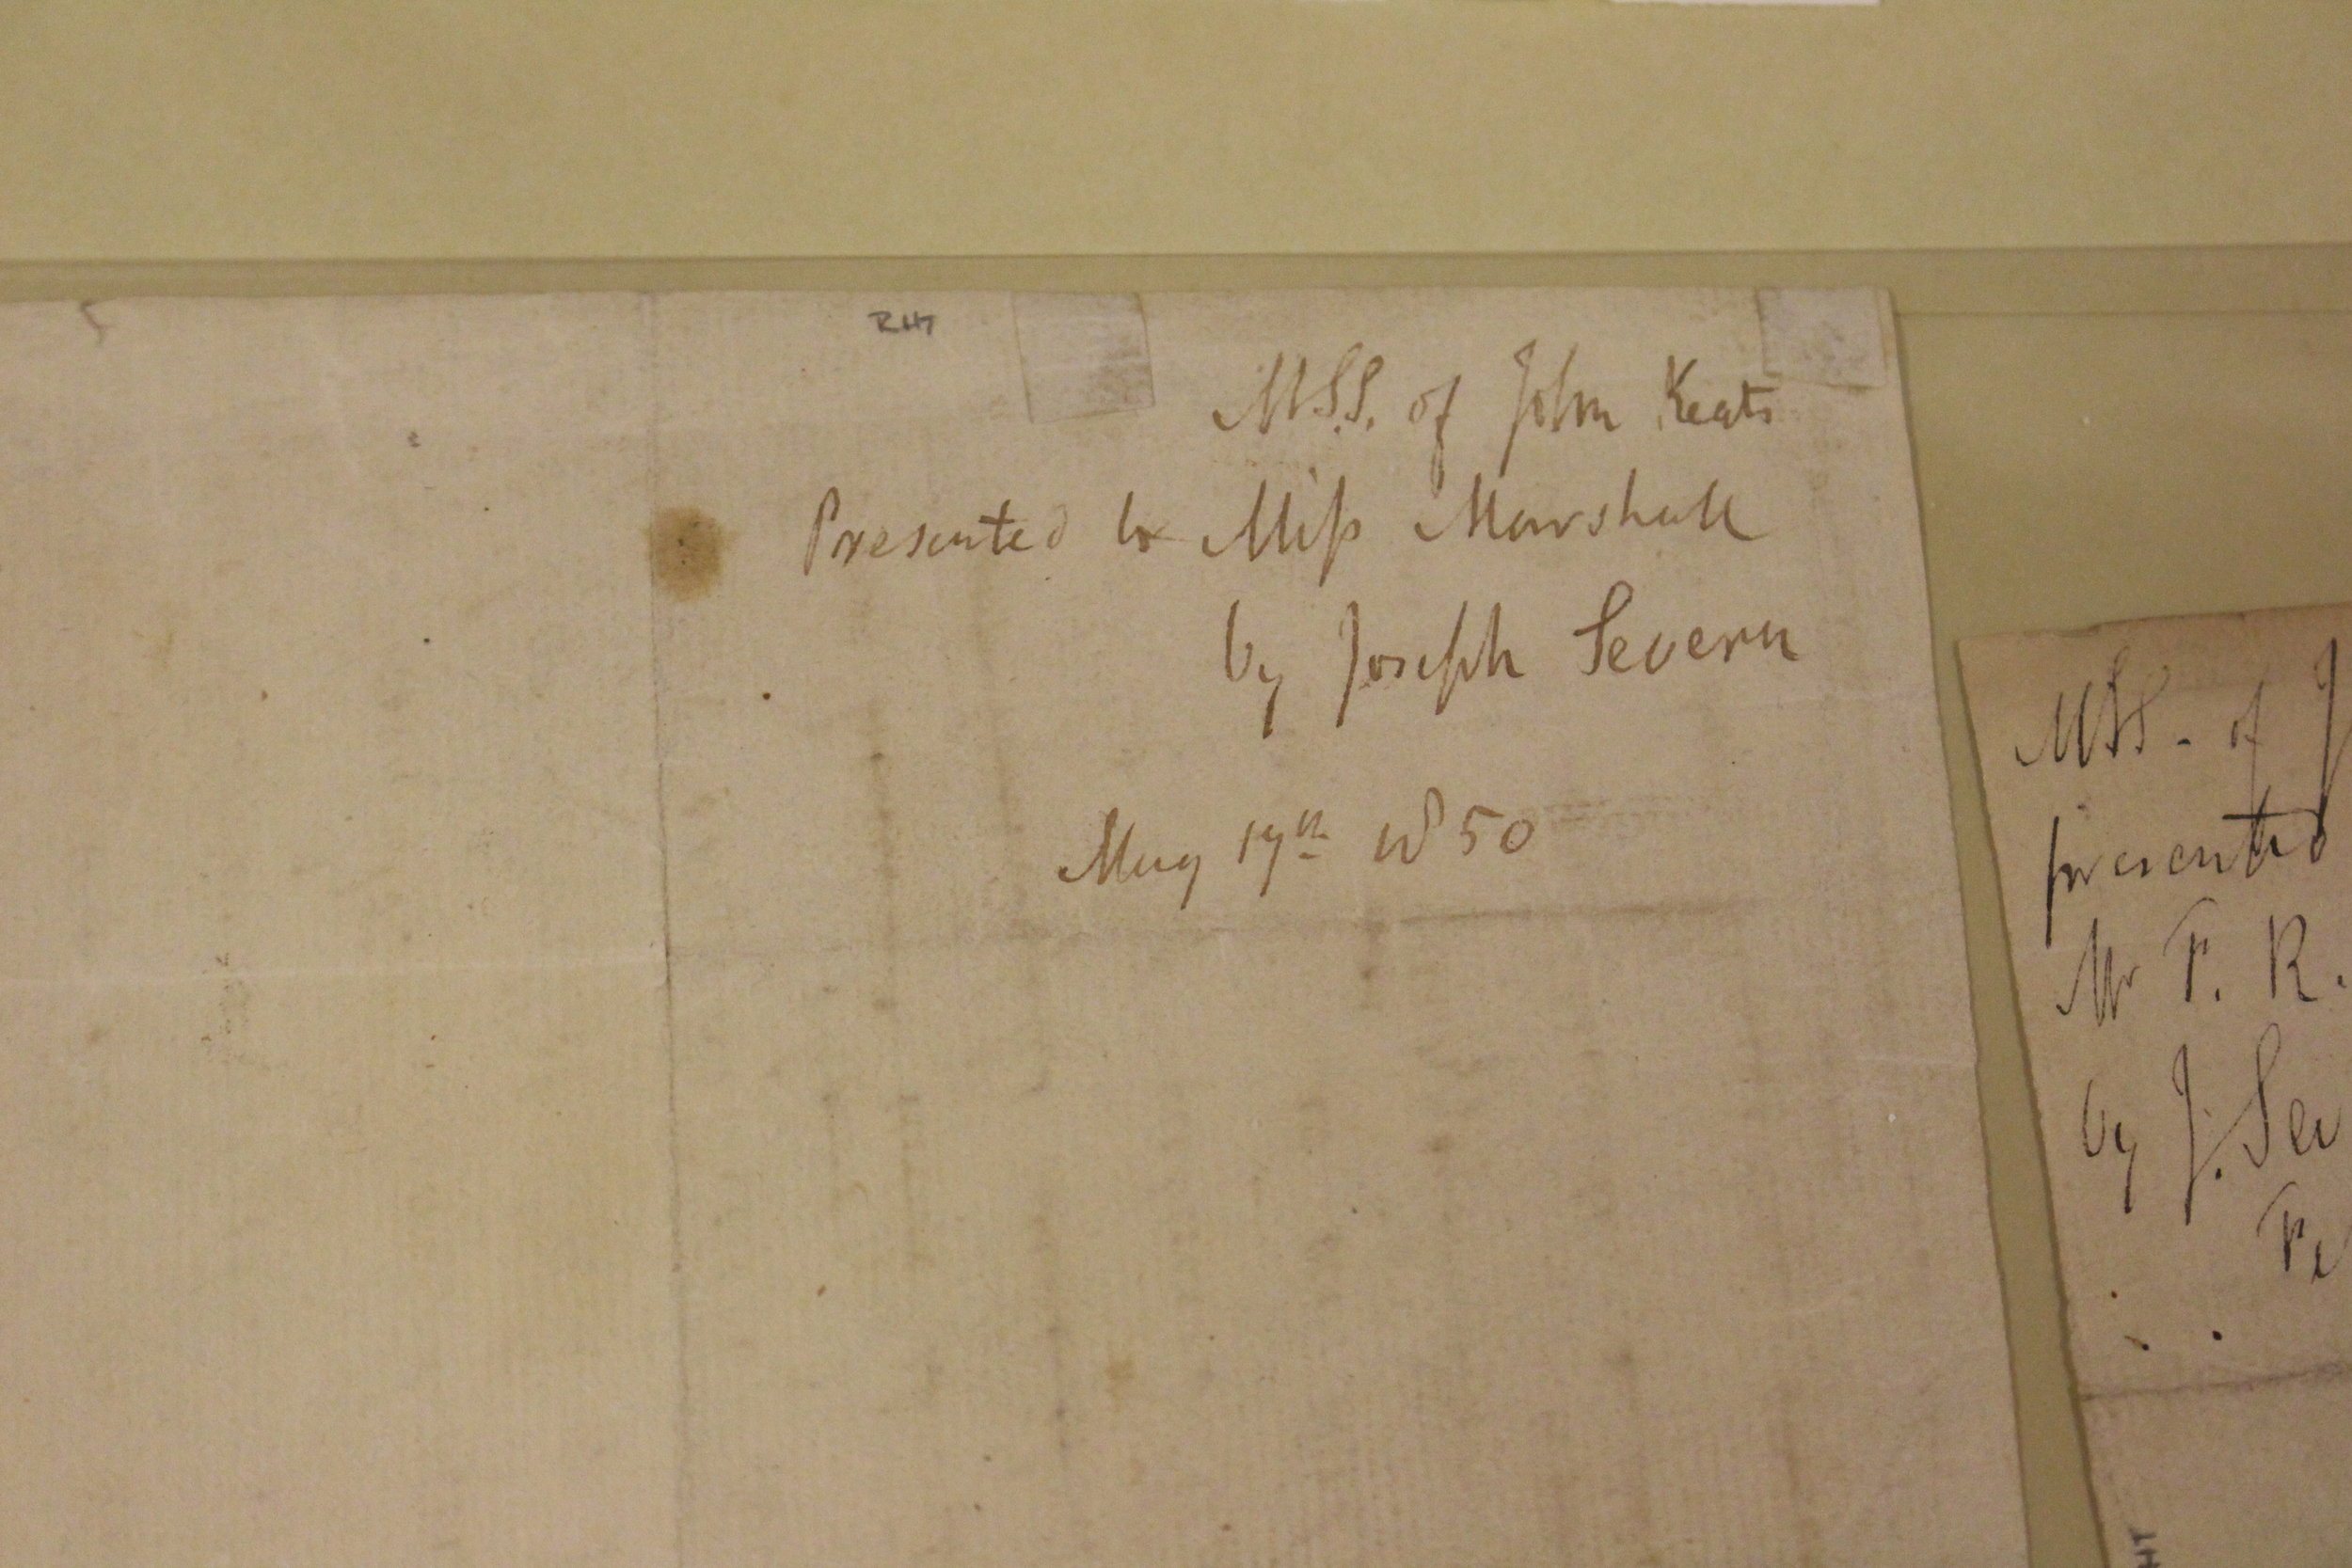 RHT
MSS. of John Keats
Presented to Miss Marshall
by Joseph Severn
May 17th 1850
MSS. of J
presented
Mr F. R.
by J. Sev
Fe
HT